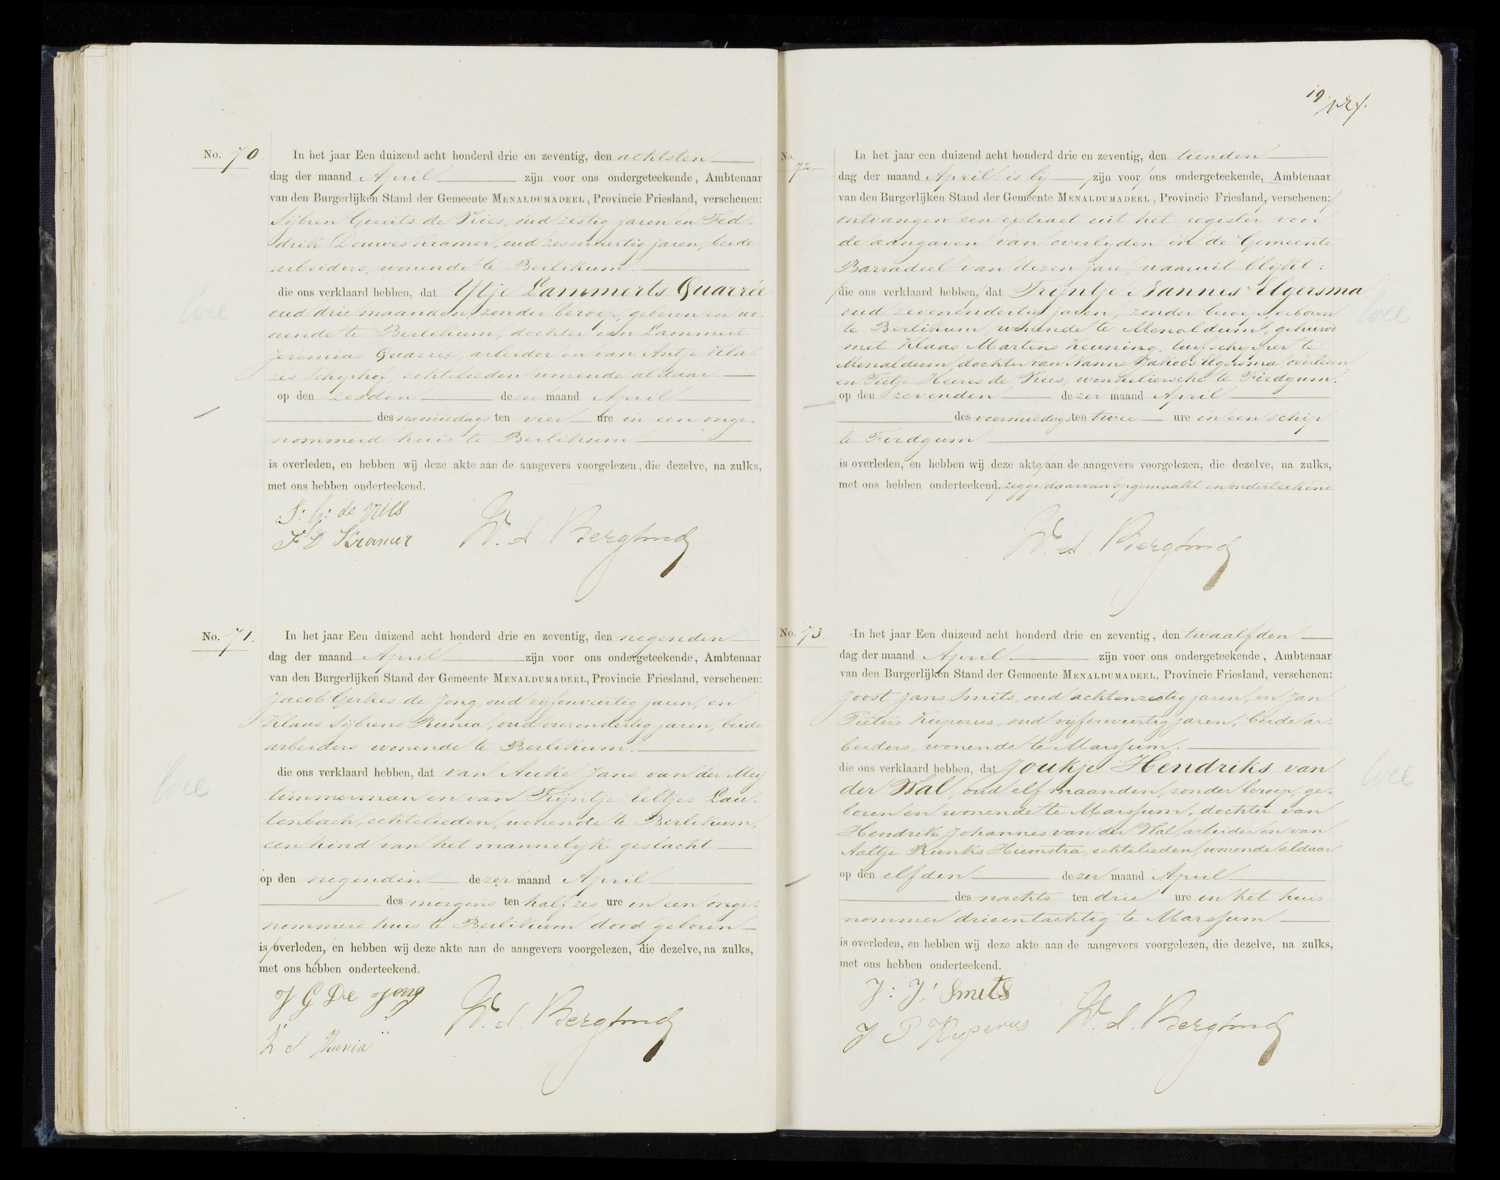 No. 70 In het jaar Een duizend acht honderd drie en zeventig, den achtsten
dag der maand April zijn voor ons ondergeteekende, Ambtenaar
van den Burgerlijken Stand der Gemeente MENALDUMADEEL, Provincie Friesland, verschenen:
Sijbren Gerrits de Vries, oud zestig jaren en Fed-
drik Douwes Kramer, oud zesenveertig jaren, beide
arbeiders, wonende te Berlikum.
die ons verklaard hebben, dat Ytje Lammerts Quarrée
oud drie maanden, zonder beroep, geboren en wo-
nende te Berlikum, dochter van Lammert
Jeremias Quarree, arbeider en van Antje Kla-
zes echtelieden wonende aldaar
op den zesden dezer maand April
des namiddags ten vier ure in een onge-
nommerd huis te Berlikum
is overleden, en hebben wij deze akte aan de aangevers voorgelezen, die dezelve, na zulks,
met ons hebben onderteekend.
S: G: de Vries
F D Kramer W. S. Berglund
No. 71. In het jaar Een duizend acht honderd drie en zeventig, den negenden
dag der maand April zijn voor ons ondergeteekende, Ambtenaar
van den Burgerlijken Stand der Gemeente MENALDUMADEEL, Provincie Friesland, verschenen:
Jacob Gerkes de Jong, oud vijfenveertig jaren, en
Klaas Sijbrens Runia, oud jaren, beide
arbeiders wonende te Berlikum.
die ons verklaard hebben, dat van Auke Jans van der Mey
timmerman en van Trijntje Eeltjes Lau-
tenbach, echtelieden, wonende te Berlikum,
een kind van het mannelijk geslacht
op den negenden dezer maand April
des morgens ten half zes ure in een onge-
nommerd huis te Berlikum dood geboren
is overleden, en hebben wij deze akte aan de aangevers voorgelezen, die dezelve, na zulks,
met ons hebben onderteekend.
J G De Jong
K S Runia W. S. Berglund
19
No. 72 In het jaar een duizend acht honderd drie en zeventig, den tienden
dag der maand April is bij zijn voor ons ondergeteekende, Ambtenaar
van den Burgerlijken Stand der Gemeente MENALDUMADEEL, Provincie Friesland, verschenen:
ontvangen een extract uit het register voor
de aangaven van overlijden in de Gemeente
Barradeel van dezen jare, waaruit blijkt:
die ons verklaard hebben, dat Trijntje Nannes Algersma
oud zevenendertig jaren, zonder beroep, geboren
te Berlikum, wonende te Menaldum, gehuwd
met Klaas Martens Keuning, te
Menaldum, dochter van Nanne Jakobs Algersma, overleden
en Tietje Heeres de Vries, te Firdgum.
op den zevenden dezer maand April
des voormiddags ten twee ure in een schip
te Firdgum
is overleden, en hebben wij deze akte aan de aangevers voorgelezen, die dezelve, na zulks,
met ons hebben onderteekend. zegge daarvan opgemaakt en onderteekend
W. S. Berglund
No. 73. In het jaar Een duizend acht honderd drie en zeventig, den twaalfden
dag der maand April zijn voor ons ondergeteekende, Ambtenaar
van den Burgerlijken Stand der Gemeente MENALDUMADEEL, Provincie Friesland, verschenen:
Joost Jans Smits, oud achtenzestig jaren, en Jan
Pieters Kuperus, oud vijfenveertig jaren, beide ar-
beiders, wonende te Marssum.
die ons verklaard hebben, dat Joukje Hendriks van
der Wal, oud elf maanden, zonder beroep, ge-
boren en wonende te Marssum, dochter van
Hendrik Johannes van der Wal arbeider en van
Aaltje Rienks Hiemstra, echtelieden, wonende aldaar
op den elfden dezer maand April
des nachts ten drie ure in het huis
nommer drieentachtig te Marssum
is overleden, en hebben wij deze akte aan de aangevers voorgelezen, die dezelve, na zulks,
met ons hebben onderteekend.
J: J: Smits
J P Kuperus W. S. Berglund